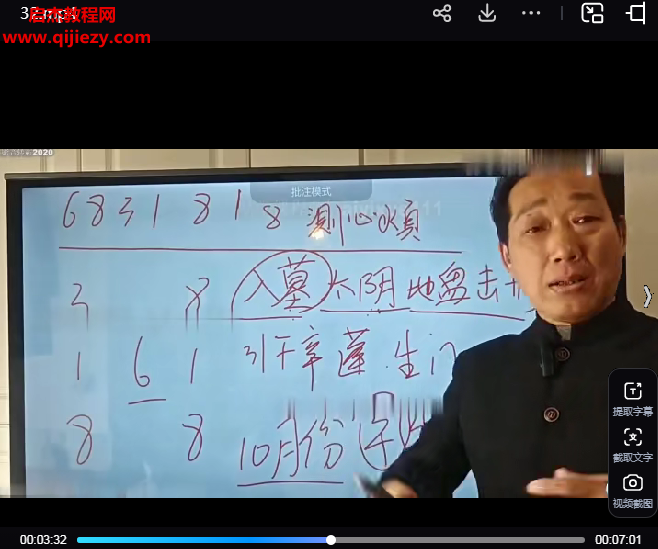 32.mp4
启杰教程网
www.qijiezy.com
2020
批注模式
6831818 测心烦
3 8 入墓 太阴 地盘击
1 6 1 引干辛蓬.生门
8 8 10月份
提取字幕
截取文字
视频截图
00:03:32
00:07:01